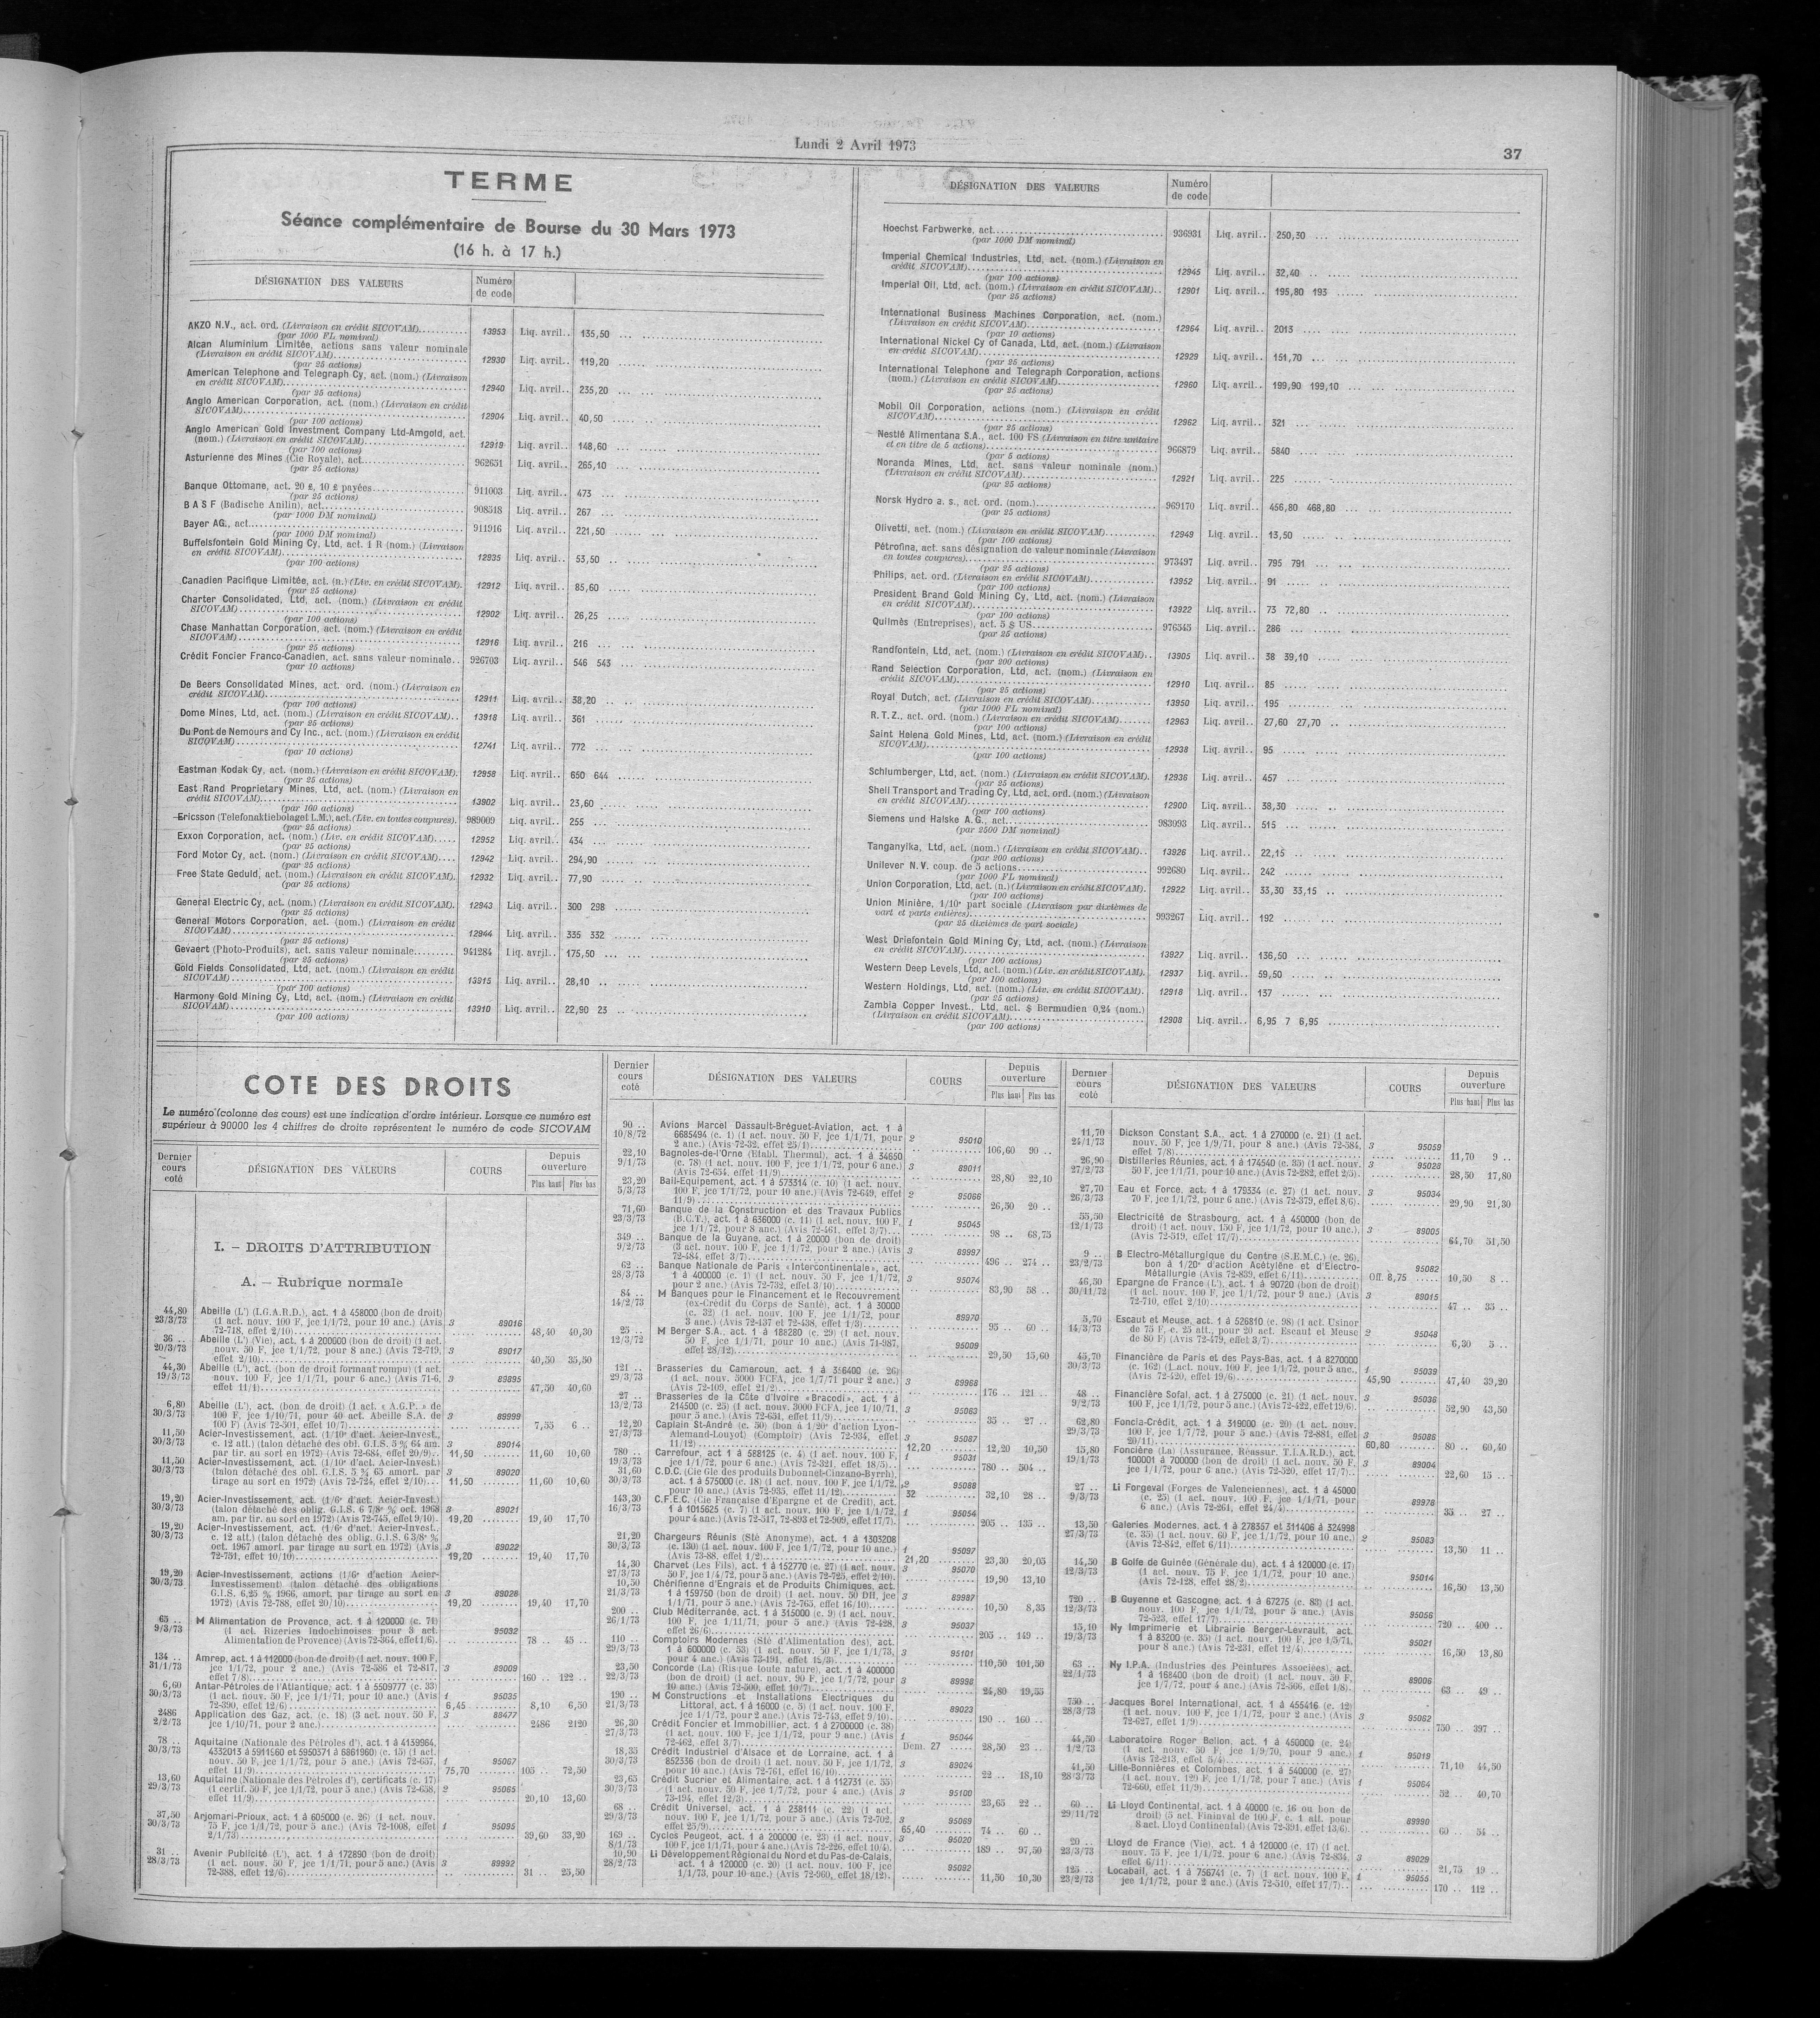 Lundi 2 Avril 1973
37
TERME
Séance complémentaire de Bourse du 30 Mars 1973
(16 h. à 17 h.)
DÉSIGNATION DES VALEURS Numéro de code
AKZO N.V., act. ord. (Livraison en crédit SICOVAM) 13953 Liq. avril.. 135,50
(par 1000 FL nominal)
Alcan Aluminium Limitée, actions sans valeur nominale
(Livraison en crédit SICOVAM) 12930 Liq. avril.. 119,20
(par 25 actions)
American Telephone and Telegraph Cy, act. (nom.) (Livraison
en crédit SICOVAM) 12940 Liq. avril.. 235,20
(par 25 actions)
Anglo American Corporation, act. (nom.) (Livraison en crédit
SICOVAM) 12904 Liq. avril.. 40,50
(par 100 actions)
Anglo American Gold Investment Company Ltd-Amgold, act.
(nom.) (Livraison en crédit SICOVAM) 12919 Liq. avril.. 148,60
(par 100 actions)
Asturienne des Mines (Cie Royale), act. 962651 Liq. avril.. 265,10
(par 25 actions)
Banque Ottomane, act. 20 £, 10 £ payées 911003 Liq. avril.. 473
(par 25 actions)
B A S F (Badische Anilin), act. 908518 Liq. avril.. 267
(par 1000 DM nominal)
Bayer AG., act. 911916 Liq. avril.. 221,50
(par 1000 DM nominal)
Buffelsfontein Gold Mining Cy, Ltd, act. 1 R (nom.) (Livraison
en crédit SICOVAM) 12935 Liq. avril.. 53,50
(par 100 actions)
Canadien Pacifique Limitée, act. (n.) (Liv. en crédit SICOVAM). 12912 Liq. avril.. 85,60
(par 25 actions)
Charter Consolidated, Ltd, act. (nom.) (Livraison en crédit
SICOVAM) 12902 Liq. avril.. 26,25
(par 100 actions)
Chase Manhattan Corporation, act. (nom.) (Livraison en crédit
SICOVAM) 12916 Liq. avril.. 216
(par 25 actions)
Crédit Foncier Franco-Canadien, act. sans valeur nominale.. 926703 Liq. avril.. 546 543
(par 10 actions)
De Beers Consolidated Mines, act. ord. (nom.) (Livraison en
crédit SICOVAM) 12911 Liq. avril.. 38,20
(par 100 actions)
Dome Mines, Ltd, act. (nom.) (Livraison en crédit SICOVAM).. 13918 Liq. avril.. 361
(par 25 actions)
Du Pont de Nemours and Cy Inc., act. (nom.) (Livraison en crédit
SICOVAM) 12741 Liq. avril.. 772
(par 10 actions)
Eastman Kodak Cy, act. (nom.) (Livraison en crédit SICOVAM). 12958 Liq. avril.. 650 644
(par 25 actions)
East Rand Proprietary Mines, Ltd, act. (nom.) (Livraison en
crédit SICOVAM) 13902 Liq. avril.. 23,60
(par 100 actions)
Ericsson (Telefonaktiebolaget L.M.), act. (Liv. en toutes coupures). 989009 Liq. avril.. 255
(par 25 actions)
Exxon Corporation, act. (nom.) (Liv. en crédit SICOVAM) 12952 Liq. avril.. 434
(par 25 actions)
Ford Motor Cy, act. (nom.) (Livraison en crédit SICOVAM) 12942 Liq. avril.. 294,90
(par 25 actions)
Free State Geduld, act. (nom.) (Livraison en crédit SICOVAM). 12932 Liq. avril.. 77,90
(par 25 actions)
General Electric Cy, act. (nom.) (Livraison en crédit SICOVAM). 12943 Liq. avril.. 300 298
(par 25 actions)
General Motors Corporation, act. (nom.) (Livraison en crédit
SICOVAM) 12944 Liq. avril.. 335 332
(par 25 actions)
Gevaert (Photo-Produits), act. sans valeur nominale 941284 Liq. avril.. 175,50
(par 25 actions)
Gold Fields Consolidated, Ltd, act. (nom.) (Livraison en crédit
SICOVAM) 13915 Liq. avril.. 28,10
(par 100 actions)
Harmony Gold Mining Cy, Ltd, act. (nom.) (Livraison en crédit
SICOVAM) 13910 Liq. avril.. 22,90 23
(par 100 actions)
DÉSIGNATION DES VALEURS Numéro de code
Hoechst Farbwerke, act. 936931 Liq. avril.. 250,30
(par 1000 DM nominal)
Imperial Chemical Industries, Ltd, act. (nom.) (Livraison en
crédit SICOVAM) 12945 Liq. avril.. 32,40
(par 100 actions)
Imperial Oil, Ltd, act. (nom.) (Livraison en crédit SICOVAM).. 12901 Liq. avril.. 195,80 193
(par 25 actions)
International Business Machines Corporation, act. (nom.)
(Livraison en crédit SICOVAM) 12964 Liq. avril.. 2013
(par 10 actions)
International Nickel Cy of Canada, Ltd, act. (nom.) (Livraison
en crédit SICOVAM) 12929 Liq. avril.. 151,70
(par 25 actions)
International Telephone and Telegraph Corporation, actions
(nom.) (Livraison en crédit SICOVAM) 12960 Liq. avril.. 199,90 199,10
(par 25 actions)
Mobil Oil Corporation, actions (nom.) (Livraison en crédit
SICOVAM) 12962 Liq. avril.. 321
(par 25 actions)
Nestlé Alimentana S.A., act. 100 FS (Livraison en titre unitaire
et en titre de 5 actions) 966879 Liq. avril.. 5840
(par 5 actions)
Noranda Mines, Ltd, act. sans valeur nominale (nom.)
(Livraison en crédit SICOVAM) 12921 Liq. avril.. 225
(par 25 actions)
Norsk Hydro a. s., act. ord. (nom.) 969170 Liq. avril.. 456,80 468,80
(par 25 actions)
Olivetti, act. (nom.) (Livraison en crédit SICOVAM) 12949 Liq. avril.. 13,50
(par 100 actions)
Pétrofina, act. sans désignation de valeur nominale (Livraison
en toutes coupures) 973497 Liq. avril.. 795 791
(par 25 actions)
Philips, act. ord. (Livraison en crédit SICOVAM) 13952 Liq. avril.. 91
(par 100 actions)
President Brand Gold Mining Cy, Ltd, act. (nom.) (Livraison
en crédit SICOVAM) 13922 Liq. avril.. 73 72,80
(par 100 actions)
Quilmès (Entreprises), act. 5 $ US 976545 Liq. avril.. 286
(par 25 actions)
Randfontein, Ltd, act. (nom.) (Livraison en crédit SICOVAM).. 13905 Liq. avril.. 38 39,10
(par 200 actions)
Rand Selection Corporation, Ltd, act. (nom.) (Livraison en
crédit SICOVAM) 12910 Liq. avril.. 85
(par 25 actions)
Royal Dutch, act. (Livraison en crédit SICOVAM) 13950 Liq. avril.. 195
(par 1000 FL nominal)
R.T.Z., act. ord. (nom.) (Livraison en crédit SICOVAM) 12963 Liq. avril.. 27,60 27,70
(par 100 actions)
Saint Helena Gold Mines, Ltd, act. (nom.) (Livraison en crédit
SICOVAM) 12938 Liq. avril.. 95
(par 100 actions)
Schlumberger, Ltd, act. (nom.) (Livraison en crédit SICOVAM). 12936 Liq. avril.. 457
(par 25 actions)
Shell Transport and Trading Cy, Ltd, act. ord. (nom.) (Livraison
en crédit SICOVAM) 12900 Liq. avril.. 38,30
(par 100 actions)
Siemens und Halske A.G., act. 983093 Liq. avril.. 515
(par 2500 DM nominal)
Tanganyika, Ltd, act. (nom.) (Livraison en crédit SICOVAM).. 13926 Liq. avril.. 22,15
(par 200 actions)
Unilever N.V. coup. de 5 actions 992680 Liq. avril.. 242
(par 1000 FL nominal)
Union Corporation, Ltd, act. (n.) (Livraison en crédit SICOVAM). 12922 Liq. avril.. 33,30 33,15
(par 100 actions)
Union Minière, 1/10e part sociale (Livraison par dixièmes de
part et parts entières) 993267 Liq. avril.. 192
(par 25 dixièmes de part sociale)
West Driefontein Gold Mining Cy, Ltd, act. (nom.) (Livraison
en crédit SICOVAM) 13927 Liq. avril.. 136,50
(par 100 actions)
Western Deep Levels, Ltd, act. (nom.) (Liv. en crédit SICOVAM). 12937 Liq. avril.. 59,50
(par 100 actions)
Western Holdings, Ltd, act. (nom.) (Liv. en crédit SICOVAM). 12918 Liq. avril.. 137
(par 25 actions)
Zambia Copper Invest., Ltd, act. $ Bermudien 0,24 (nom.)
(Livraison en crédit SICOVAM) 12908 Liq. avril.. 6,95 7 6,95
(par 100 actions)
COTE DES DROITS
Le numéro (colonne des cours) est une indication d'ordre intérieur. Lorsque ce numéro est
supérieur à 90000 les 4 chiffres de droite représentent le numéro de code SICOVAM
Dernier cours coté DÉSIGNATION DES VALEURS COURS Depuis ouverture Plus haut Plus bas
I. – DROITS D'ATTRIBUTION
A. — Rubrique normale
44,80 Abeille (L') (I.G.A.R.D.), act. 1 à 458000 (bon de droit)
23/3/73 (1 act. nouv. 100 F, jce 1/1/72, pour 10 anc.) (Avis 3 89016
72-718, effet 2/10) 48,40 40,30
36 .. Abeille (L') (Vie), act. 1 à 200000 (bon de droit) (1 act.
20/3/73 nouv. 50 F, jce 1/1/72, pour 8 anc.) (Avis 72-719, 3 89017
effet 2/10) 40,50 35,50
44,30 Abeille (L'), act. (bon de droit formant rompu) (1 act.
19/3/73 nouv. 100 F, jce 1/1/71, pour 6 anc.) (Avis 71-6, 3 89895
effet 11/1) 47,50 40,60
6,80 Abeille (L'), act. (bon de droit) (1 act. « A.G.P. » de
30/3/73 100 F, jce 1/10/71, pour 40 act. Abeille S.A. de 3 89999
100 F) (Avis 72-501, effet 10/7) 7,55 6 ..
11,50 Acier-Investissement, act. (1/10e d'act. Acier-Invest.,
30/3/73 c. 12 att.) (talon détaché des obl. G.I.S. 5 ¾ 64 am. 3 89014
par tir. au sort en 1972) (Avis 72-684, effet 20/9).. 11,50 11,60 10,60
11,50 Acier-Investissement, act. (1/10e d'act. Acier-Invest.)
30/3/73 (talon détaché des obl. G.I.S. 5 ¾ 65 amort. par 3 89020
tirage au sort en 1972) (Avis 72-724, effet 2/10) 11,50 11,60 10,60
19,20 Acier-Investissement, act. (1/6e d'act. Acier-Invest.)
30/3/73 (talon détaché des oblig. G.I.S. 6 7/8e % oct. 1968 3 89021
am. par tir. au sort en 1972) (Avis 72-745, effet 9/10). 19,20 19,40 17,70
19,20 Acier-Investissement, act. (1/6e d'act. Acier-Invest.,
30/3/73 c. 12 att.) (talon détaché des oblig. G.I.S. 6 3/8e %
oct. 1967 amort. par tirage au sort en 1972) (Avis 3 89022
72-751, effet 10/10) 19,20 19,40 17,70
19,20 Acier-Investissement, actions (1/6e d'action Acier-
30/3/73 Investissement) (talon détaché des obligations
G.I.S. 6,25 % 1966, amort. par tirage au sort en 3 89026
1972) (Avis 72-788, effet 20/10) 19,20 19,40 17,70
65 .. M Alimentation de Provence, act. 1 à 120000 (c. 71)
9/3/73 (1 act. Rizeries Indochinoises pour 3 act. 95032
Alimentation de Provence) (Avis 72-364, effet 1/6). 78 .. 45 ..
134 .. Amrep, act. 1 à 112000 (bon de droit) (1 act. nouv. 100 F,
31/1/73 jce 1/1/72, pour 2 anc.) (Avis 72-586 et 72-817, 3 89009
effet 7/8) 160 .. 122 ..
6,60 Antar-Pétroles de l'Atlantique, act. 1 à 5509777 (c. 33)
30/3/73 (1 act. nouv. 50 F, jce 1/1/71, pour 10 anc.) (Avis 1 95035
72-390, effet 12/6) 6,45 8,10 6,50
2486 Application des Gaz, act. (c. 18) (3 act. nouv. 50 F, 3 88477
2/2/73 jce 1/10/71, pour 2 anc.) 2486 2120
78 .. Aquitaine (Nationale des Pétroles d'), act. 1 à 4159964,
30/3/73 4332013 à 5911560 et 5950371 à 6861960) (c. 15) (1 act.
nouv. 50 F, jce 1/1/72, pour 5 anc.) (Avis 72-657, 1 95067
effet 11/9) 75,70 105 .. 72,50
13,60 Aquitaine (Nationale des Pétroles d'), certificats (c. 17)
29/3/73 (1 certif. 50 F, jce 1/1/72, pour 5 anc.) (Avis 72-658, 2 95065
effet 11/9) 20,10 13,60
37,50 Arjomari-Prioux, act. 1 à 605000 (c. 26) (1 act. nouv.
30/3/73 75 F, jce 1/1/72, pour 5 anc.) (Avis 72-1008, effet 1 95095
2/1/73) 39,60 33,20
31 .. Avenir Publicité (L'), act. 1 à 172890 (bon de droit)
28/3/73 (1 act. nouv. 50 F, jce 1/1/71, pour 5 anc.) (Avis 3 89992
72-388, effet 12/6) 31 .. 25,50
Dernier cours coté DÉSIGNATION DES VALEURS COURS Depuis ouverture Plus haut Plus bas
90 .. Avions Marcel Dassault-Bréguet-Aviation, act. 1 à
10/8/72 6685494 (c. 1) (1 act. nouv. 50 F, jce 1/1/71, pour 2 95010
2 anc.) (Avis 72-32, effet 25/1) 106,60 90 ..
22,10 Bagnoles-de-l'Orne (Etabl. Thermal), act. 1 à 34650
9/1/73 (c. 78) (1 act. nouv. 100 F, jce 1/1/72, pour 6 anc.) 3 89011
(Avis 72-654, effet 11/9) 28,80 22,10
23,20 Bail-Equipement, act. 1 à 573314 (c. 10) (1 act. nouv.
5/3/73 100 F, jce 1/1/72, pour 10 anc.) (Avis 72-649, effet 2 95066
11/9) 26,50 20 ..
71,60 Banque de la Construction et des Travaux Publics
23/3/73 (B.C.T.), act. 1 à 636000 (c. 11) (1 act. nouv. 100 F, 1 95045
jce 1/1/72, pour 8 anc.) (Avis 72-461, effet 3/7) 98 .. 68,75
349 .. Banque de la Guyane, act. 1 à 20000 (bon de droit)
9/2/73 (3 act. nouv. 100 F, jce 1/1/72, pour 2 anc.) (Avis 3 89997
72-484, effet 3/7) 496 .. 274 ..
62 .. Banque Nationale de Paris «Intercontinentale», act.
28/3/73 1 à 400000 (c. 1) (1 act. nouv. 50 F, jce 1/1/72, 3 95074
pour 2 anc.) (Avis 72-732, effet 3/10) 83,90 58 ..
84 .. M Banques pour le Financement et le Recouvrement
14/2/73 (ex-Crédit du Corps de Santé), act. 1 à 30000
(c. 32) (1 act. nouv. 100 F, jce 1/1/72, pour 89970
3 anc.) (Avis 72-137 et 72-438, effet 1/3) 95 .. 60 ..
25 .. M Berger S.A., act. 1 à 188280 (c. 29) (1 act. nouv.
12/3/72 50 F, jce 1/1/71, pour 10 anc.) (Avis 71-987, 95009
effet 28/12) 29,50 15,60
121 .. Brasseries du Cameroun, act. 1 à 356400 (c. 26)
29/3/73 (1 act. nouv. 5000 FCFA, jce 1/7/71 pour 2 anc.) 3 89968
(Avis 72-109, effet 21/2) 176 .. 121 ..
27 .. Brasseries de la Côte d'Ivoire «Bracodi», act. 1 à
13/2/73 214500 (c. 25) (1 act. nouv. 3000 FCFA, jce 1/10/71, 3 95063
pour 5 anc.) (Avis 72-651, effet 11/9) 35 .. 27 ..
12,20 Captain St-André (c. 50) (bon à 1/20e d'action Lyon-
27/3/73 Alemand-Louyot) (Comptoir) (Avis 72-934, effet 3 95087
11/12) 12,20 12,20 10,50
780 .. Carrefour, act. 1 à 588125 (c. 4) (1 act. nouv. 100 F, 1 95031
19/3/73 jce 1/1/72, pour 6 anc.) (Avis 72-321, effet 18/5) 780 .. 504 ..
31,60 C.D.C. (Cie Gle des produits Dubonnet-Cinzano-Byrrh),
30/3/73 act. 1 à 575000 (c. 18) (1 act. nouv. 100 F, jce 1/1/72, 2 95088
pour 10 anc.) (Avis 72-935, effet 11/12) 32 32,10 28 ..
143,30 C.F.E.C. (Cie Française d'Epargne et de Crédit), act.
16/3/73 1 à 1015625 (c. 7) (1 act. nouv. 100 F, jce 1/1/72, 1 95054
pour 4 anc.) (Avis 72-517, 72-893 et 72-909, effet 17/7). 205 .. 135 ..
21,20 Chargeurs Réunis (Sté Anonyme), act. 1 à 1303208
30/3/73 (c. 130) (1 act. nouv. 100 F, jce 1/7/72, pour 10 anc.) 1 95097
(Avis 73-88, effet 1/2) 21,20 23,30 20,05
14,30 Charvet (Les Fils), act. 1 à 152770 (c. 27) (1 act. nouv. 3 95070
27/3/73 50 F, jce 1/4/72, pour 5 anc.) (Avis 72-725, effet 2/10). 19,90 13,10
10,50 Chérifienne d'Engrais et de Produits Chimiques, act.
21/3/73 1 à 159750 (bon de droit) (1 act. nouv. 50 DH, jce 3 89987
1/1/71, pour 5 anc.) (Avis 72-765, effet 16/10) 10,50 8,35
200 .. Club Méditerranée, act. 1 à 315000 (c. 9) (1 act. nouv.
26/1/73 100 F, jce 1/11/71, pour 5 anc.) (Avis 72-428, 3 95037
effet 26/6) 205 .. 149 ..
110 .. Comptoirs Modernes (Sté d'Alimentation des), act.
29/3/73 1 à 600000 (c. 53) (1 act. nouv. 50 F, jce 1/1/73, 3 95101
pour 4 anc.) (Avis 73-191, effet 12/3) 110,50 101,50
23,50 Concorde (La) (Risque toute nature), act. 1 à 400000
22/3/73 (bon de droit) (1 act. nouv. 90 F, jce 1/7/72, pour 3 89998
10 anc.) (Avis 72-500, effet 10/7) 24,80 19,55
190 .. M Constructions et Installations Electriques du
21/3/73 Littoral, act. 1 à 16000 (c. 5) (1 act. nouv. 100 F, 89023
jce 1/1/72, pour 2 anc.) (Avis 72-743, effet 9/10) 190 .. 160 ..
26,30 Crédit Foncier et Immobilier, act. 1 à 2700000 (c. 38)
27/3/73 (1 act. nouv. 100 F, jce 1/1/72, pour 9 anc.) (Avis 1 95044
72-462, effet 3/7) Dem. 27 28,50 23 ..
18,35 Crédit Industriel d'Alsace et de Lorraine, act. 1 à
30/3/73 852336 (bon de droit) (1 act. nouv. 50 F, jce 1/1/72, 3 89024
pour 10 anc.) (Avis 72-761, effet 16/10) 22 .. 18,10
23,65 Crédit Sucrier et Alimentaire, act. 1 à 112731 (c. 55)
30/3/73 (1 act. nouv. 50 F, jce 1/7/72, pour 4 anc.) (Avis 3 95100
73-194, effet 12/3) 23,65 22 ..
68 .. Crédit Universel, act. 1 à 238111 (c. 22) (1 act.
29/3/73 nouv. 100 F, jce 1/1/72, pour 5 anc.) (Avis 72-702, 3 95069
effet 25/9) 65,40 74 .. 60 ..
169 .. Cycles Peugeot, act. 1 à 200000 (c. 23) (1 act. nouv. 3 95020
8/1/73 100 F, jce 1/1/71, pour 4 anc.) (Avis 72-226, effet 10/4). 189 .. 97,50
10,90 Li Développement Régional du Nord et du Pas-de-Calais,
28/2/73 act. 1 à 120000 (c. 20) (1 act. nouv. 100 F, jce 95092
1/1/73, pour 10 anc.) (Avis 72-960, effet 18/12). 11,50 10,30
Dernier cours coté DÉSIGNATION DES VALEURS COURS Depuis ouverture Plus haut Plus bas
11,70 Dickson Constant S.A., act. 1 à 270000 (c. 21) (1 act.
24/1/73 nouv. 50 F, jce 1/9/71, pour 8 anc.) (Avis 72-584, 3 95059
effet 7/8) 11,70 9 ..
26,90 Distilleries Réunies, act. 1 à 174540 (c. 35) (1 act. nouv. 3 95028
27/2/73 50 F, jce 1/1/71, pour 10 anc.) (Avis 72-282, effet 2/5). 28,50 17,80
27,70 Eau et Force, act. 1 à 179334 (c. 27) (1 act. nouv. 3 95034
26/3/73 70 F, jce 1/1/72, pour 6 anc.) (Avis 72-379, effet 8/6). 29,90 21,30
55,50 Electricité de Strasbourg, act. 1 à 450000 (bon de
12/1/73 droit) (1 act. nouv. 150 F, jce 1/1/72, pour 10 anc.) 3 89005
(Avis 72-519, effet 17/7) 64,70 51,50
9 .. B Electro-Métallurgique du Centre (S.E.M.C.) (c. 26),
23/2/73 bon à 1/20e d'action Acétylène et d'Electro- 95082
Métallurgie (Avis 72-839, effet 6/11) Off. 8,75 10,50 8 ..
46,50 Epargne de France (L'), act. 1 à 90720 (bon de droit)
30/11/72 (1 act. nouv. 100 F, jce 1/1/72, pour 9 anc.) (Avis 3 89015
72-710, effet 2/10) 47 .. 35 ..
5,70 Escaut et Meuse, act. 1 à 526810 (c. 98) (1 act. Usinor
14/3/73 de 75 F, c. 25 att., pour 20 act. Escaut et Meuse 2 95048
de 80 F) (Avis 72-479, effet 3/7) 6,30 5 ..
45,70 Financière de Paris et des Pays-Bas, act. 1 à 8270000
30/3/73 (c. 162) (1 act. nouv. 100 F, jce 1/1/72, pour 5 anc., 1 95039
(Avis 72-420, effet 19/6) 45,90 47,40 39,20
48 .. Financière Sofal, act. 1 à 275000 (c. 21) (1 act. nouv. 3 95036
9/2/73 100 F, jce 1/1/72, pour 5 anc.) (Avis 72-422, effet 19/6). 52,90 43,50
62,80 Foncia-Crédit, act. 1 à 319000 (c. 20) (1 act. nouv.
30/3/73 100 F, jce 1/7/72, pour 5 anc.) (Avis 72-881, effet 3 95086
20/11) 60,80 80 .. 60,40
15,80 Foncière (La) (Assurance, Réassur. T.I.A.R.D.), act.
19/1/73 100001 à 700000 (bon de droit) (1 act. nouv. 50 F, 3 89004
jce 1/1/72, pour 6 anc.) (Avis 72-520, effet 17/7) 22,60 15 ..
27 .. Li Forgeval (Forges de Valenciennes), act. 1 à 45000
9/3/73 (c. 25) (1 act. nouv. 100 F, jce 1/1/71, pour 89978
6 anc.) (Avis 72-261, effet 24/4) 35 .. 27 ..
13,50 Galeries Modernes, act. 1 à 278357 et 311406 à 324998
27/3/73 (c. 35) (1 act. nouv. 60 F, jce 1/1/72, pour 10 anc.) 2 95083
(Avis 72-842, effet 6/11) 13,50 11 ..
14,50 B Golfe de Guinée (Générale du), act. 1 à 120000 (c. 17)
12/3/73 (1 act. nouv. 75 F, jce 1/1/72, pour 10 anc.) 95014
(Avis 72-128, effet 28/2) 16,50 13,50
720 .. B Guyenne et Gascogne, act. 1 à 67275 (c. 83) (1 act.
12/3/73 nouv. 100 F, jce 1/1/72, pour 5 anc.) (Avis 95056
72-523, effet 17/7) 720 .. 400 ..
15,10 Ny Imprimerie et Librairie Berger-Levrault, act.
19/3/73 1 à 83200 (c. 35) (1 act. nouv. 100 F, jce 1/5/71, 95021
pour 8 anc.) (Avis 72-231, effet 12/4) 16,50 13,80
63 .. Ny I.P.A. (Industries des Peintures Associées), act.
22/1/73 1 à 168400 (bon de droit) (1 act. nouv. 50 F, 89006
jce 1/7/72, pour 4 anc.) (Avis 72-566, effet 1/8). 63 .. 49 ..
750 .. Jacques Borel International, act. 1 à 455416 (c. 12)
28/3/73 (1 act. nouv. 100 F, jce 1/1/72, pour 2 anc.) (Avis 3 95062
72-627, effet 1/9) 750 .. 397 ..
44,50 Laboratoire Roger Bellon, act. 1 à 450000 (c. 24)
1/2/73 (1 act. nouv. 50 F, jce 1/9/70, pour 9 anc.) 1 95019
(Avis 72-213, effet 5/4) 71,10 44,50
41,50 Lille-Bonnières et Colombes, act. 1 à 540000 (c. 27)
28/3/73 (1 act. nouv. 120 F, jce 1/1/72, pour 7 anc.) (Avis 1 95064
72-660, effet 11/9) 52 .. 40,70
60 .. Li Lloyd Continental, act. 1 à 40000 (c. 16 ou bon de
29/11/72 droit) (5 act. Fininval de 100 F, c. 1 att. pour 89990
8 act. Lloyd Continental) (Avis 72-391, effet 13/6). 60 .. 54 ..
20 .. Lloyd de France (Vie), act. 1 à 120000 (c. 17) (1 act.
23/3/73 nouv. 75 F, jce 1/1/72, pour 6 anc.) (Avis 72-834, 3 89029
effet 6/11) 21,75 19 ..
125 .. Locabail, act. 1 à 756741 (c. 7) (1 act. nouv. 100 F, 1 95055
23/2/73 jce 1/1/72, pour 2 anc.) (Avis 72-510, effet 17/7) 170 .. 112 ..